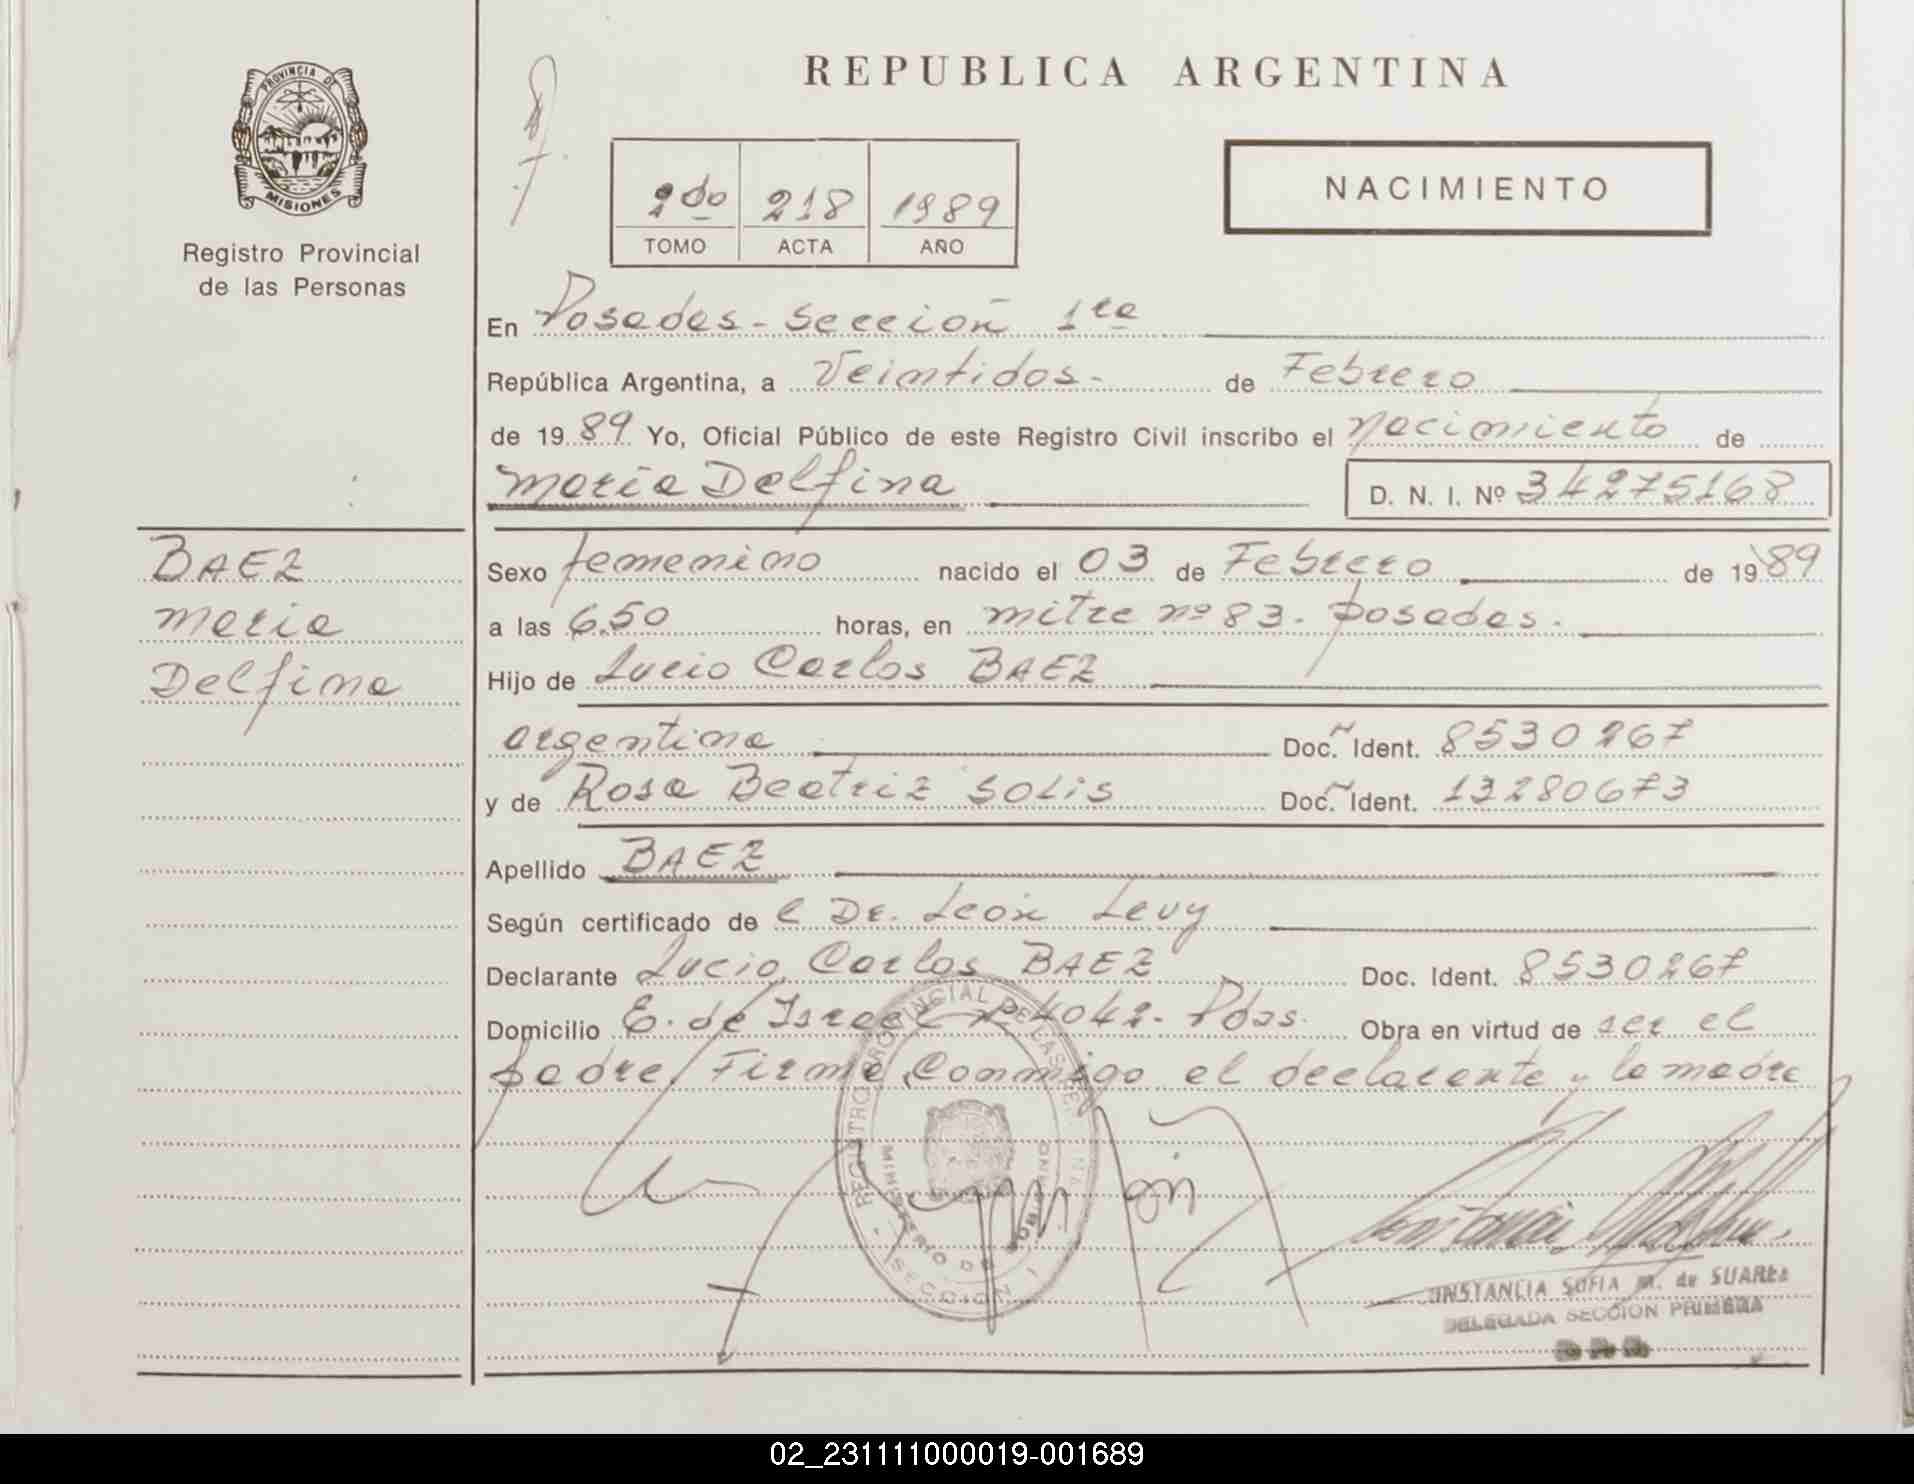 PROVINCIA DE
MISIONES
Registro Provincial
de las Personas
BAEZ
Maria
Delfina
REPUBLICA ARGENTINA
2do 218 1989
TOMO ACTA AÑO
NACIMIENTO
En Posadas - Sección 1ra
República Argentina, a Veintidos - de Febrero
de 1989 Yo, Oficial Público de este Registro Civil inscribo el nacimiento de
Maria Delfina D. N. I. Nº 34275168
Sexo femenino nacido el 03 de Febrero de 1989
a las 6.50 horas, en mitre nº 83 - posadas.
Hijo de Lucio Carlos BAEZ
argentina Doc. Ident. 8530267
y de Rosa Beatriz SOLIS Doc. Ident. 13280673
Apellido BAEZ
Según certificado de el Dr. León Levy
Declarante Lucio Carlos BAEZ Doc. Ident. 8530267
Domicilio E. de Israel nº 4042 - Pdas. Obra en virtud de ser el
padre, Firma Conmigo el declarante y la madre
REGISTRO PROVINCIAL DE LAS PERSONAS
MINISTERIO DE GOBIERNO
SECCION 1
CONSTANCIA SOFIA M. de SUAREZ
DELEGADA SECCION PRIMERA
02_231111000019-001689